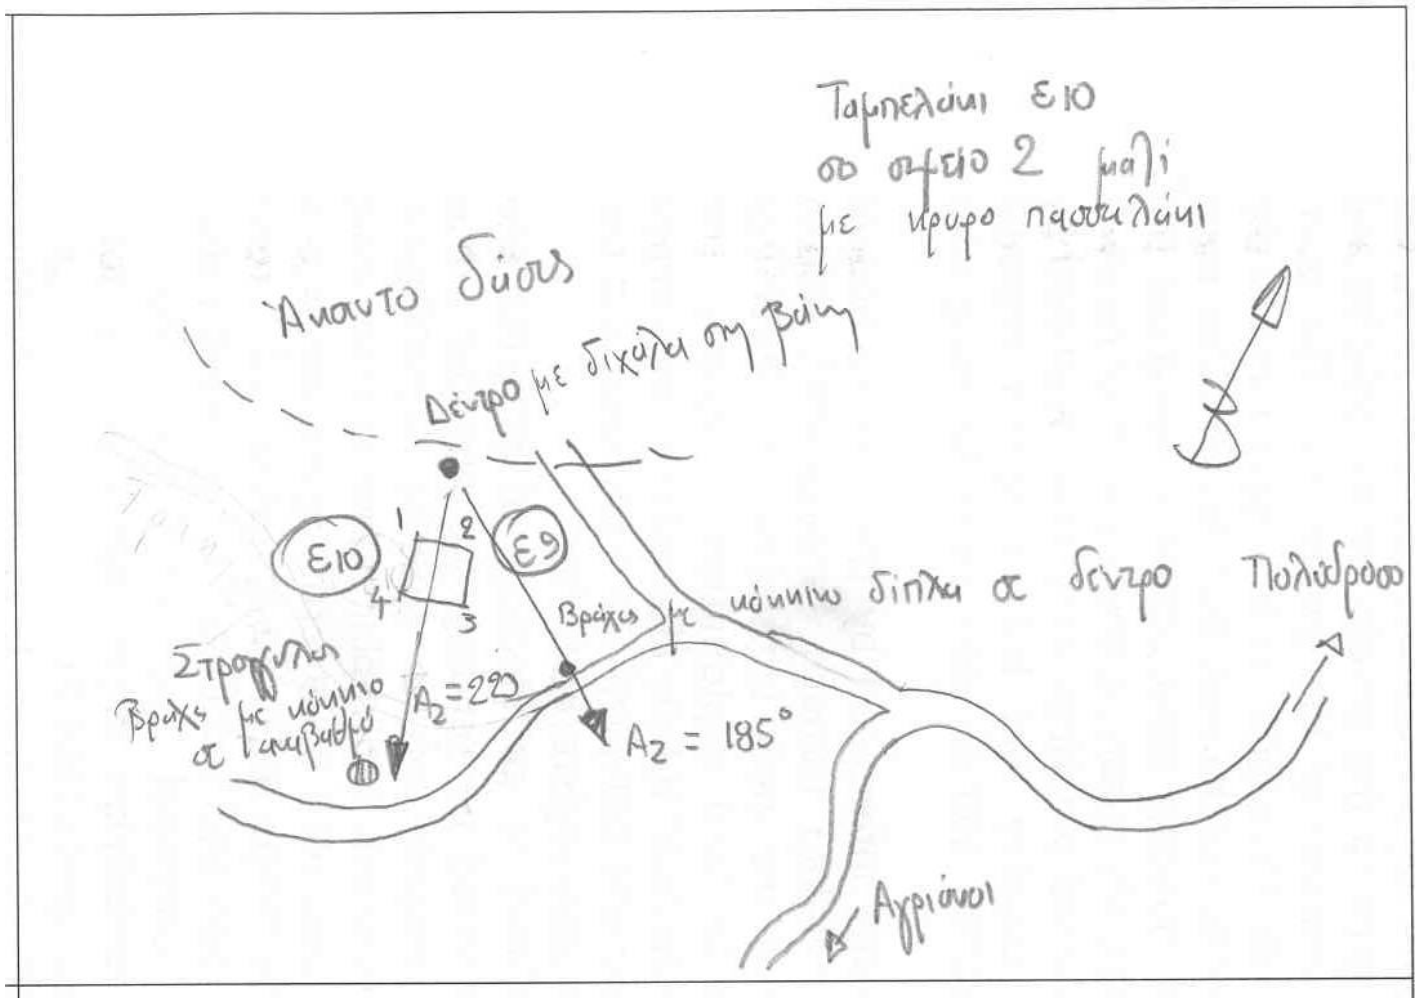 Ταμπελάκι ε10
στο σημείο 2 μαζί
με κρυφό πασσαλάκι
Άκαυτο δάσος
Δέντρο με διχάλα στη βάση
1
2
ε10
ε9
4
3
Βράχος με κόκκινο δίπλα σε δέντρο
Πολύδροσο
Στρογγυλός
Βράχος με κόκκινο
σε αναβαθμό
Az = 220
Az = 185°
Αγριάνοι